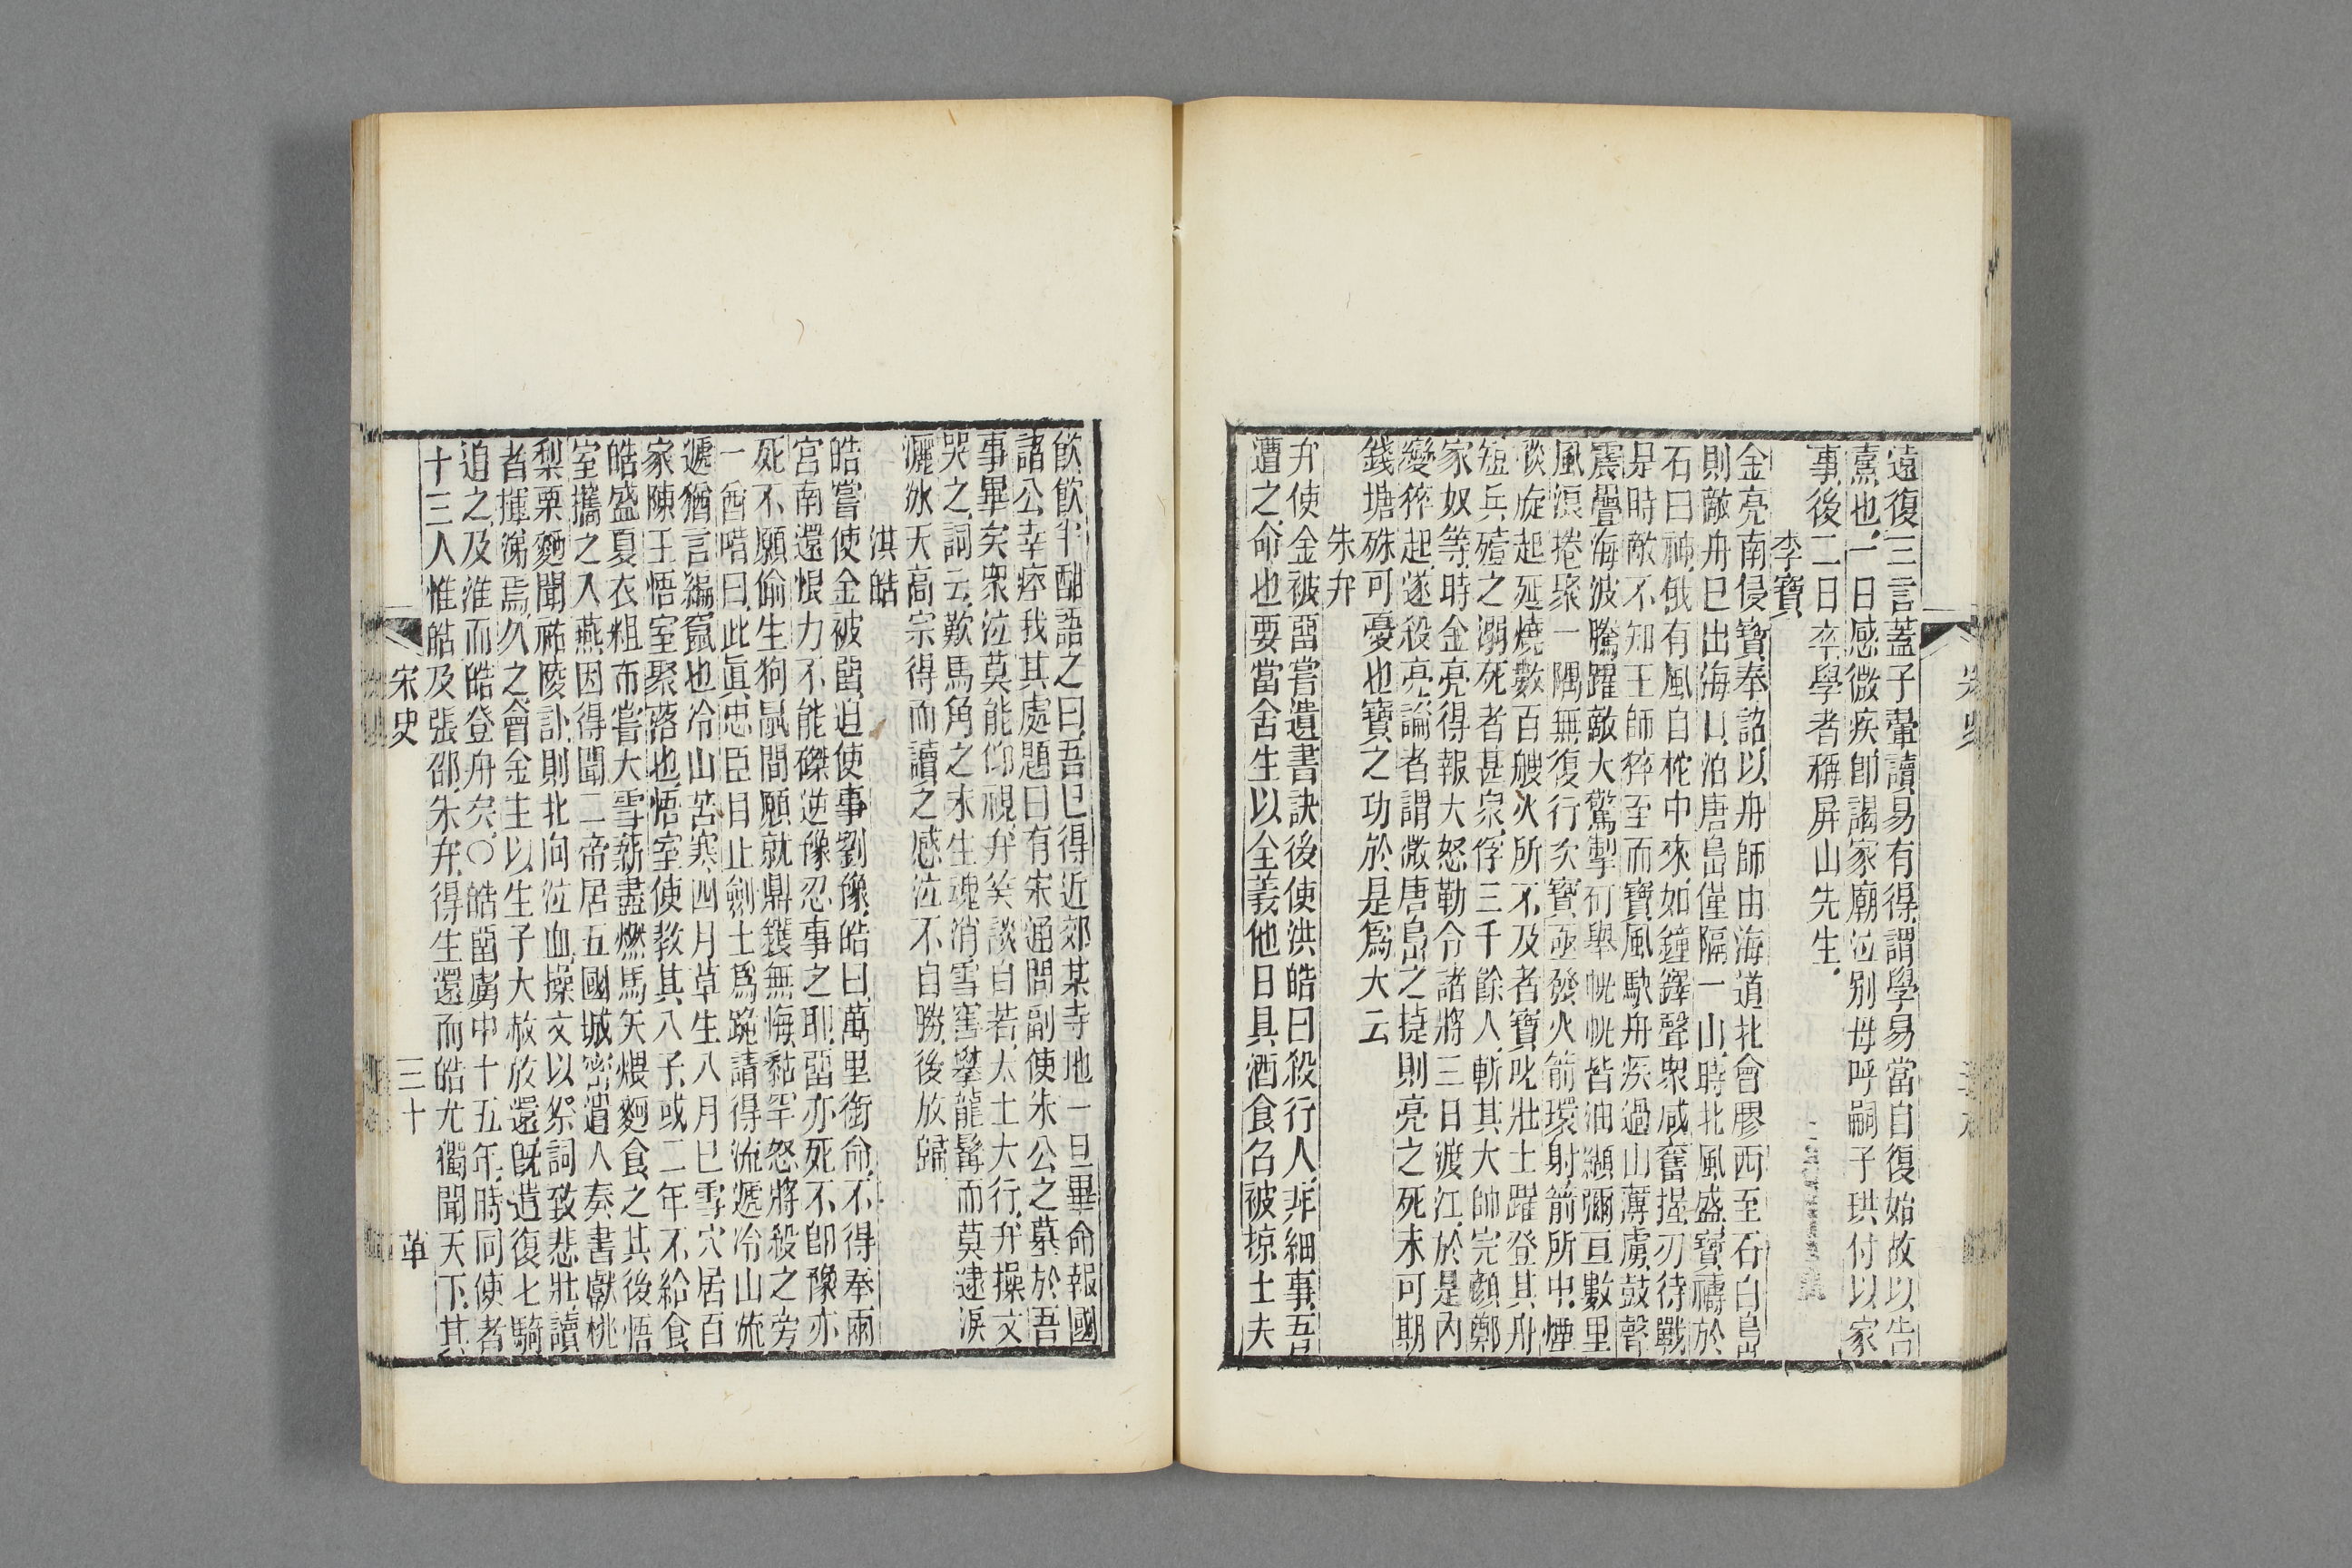 遠復三言蓋子翬讀易有得謂學易當自復始故以告
熹也一日感微疾卽謁家廟泣別母呼嗣子珙付以家
事後二日卒學者稱屏山先生
李寶
金亮南侵寶奉詔以舟師由海道北會膠西至石臼島
則敵舟巳出海口泊唐島僅隔一山時北風盛寶禱於
石臼神俄有風自柁中來如鐘鐸聲衆咸奮握刃待戰
是時敵不知王師猝至而寶風駛舟疾過山薄虜鼓聲
震疊海波騰躍敵大驚掣矴舉帆帆皆油纈彌亘數里
風浪捲聚一隅無復行次寶亟發火箭環射箭所中煙
燄旋起延燒數百艘火所不及者寶叱壯士躍登其舟
短兵殪之溺死者甚衆俘三千餘人斬其大帥完顏鄭
家奴等時金亮得報大怒勒令諸將三日渡江於是內
變猝起遂殺亮論者謂微唐島之捷則亮之死未可期
錢塘殊可憂也寶之功於是爲大云
朱弁
弁使金被畱嘗遺書訣後使洪皓曰殺行人非細事吾
遭之命也要當舍生以全義他日具酒食召被掠士夫
飮飮半酣語之曰吾巳得近郊某寺地一旦畢命報國
諸公幸瘞我其處題曰有宋通問副使朱公之墓於吾
事畢矣衆泣莫能仰視弁笑談自若太上大行弁操文
哭之詞云歎馬角之未生魂消雪窖攀龍髯而莫逮淚
灑冰天高宗得而讀之感泣不自勝後放歸
洪皓
皓嘗使金被畱迫使事劉豫皓曰萬里銜命不得奉兩
宮南還恨力不能磔逆豫忍事之耶畱亦死不卽豫亦
死不願偷生狗鼠間願就鼎鑊無悔黏罕怒將殺之旁
一酋唶曰此眞忠臣目止劍士爲跪請得流遞冷山流
遞猶言編竄也冷山苦寒四月草生八月巳雪穴居百
家陳王悟室聚落也悟室使敎其八子或二年不給食
皓盛夏衣粗布嘗大雪薪盡燃馬矢煨麪食之其後悟
室攜之入燕因得聞二帝居五國城密遣人奏書獻桃
梨粟麪聞祐陵訃則北向泣血操文以祭詞致悲壯讀
者揮涕焉久之會金主以生子大赦放還旣遣復七騎
追之及淮而皓登舟矣〇皓畱虜中十五年時同使者
十三人惟皓及張邵朱弁得生還而皓尤獨聞天下其
宋史
三十
革